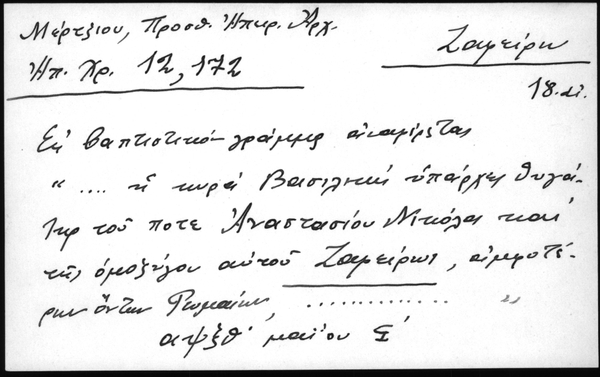 Μέρτζιου, Προσθ. Ἠπειρ. Ἀρχ.
Ἠπ. Χρ. 12, 172
Ζαφείρω
18. αἰ.
Εἰς βαπτιστικὸν γράμμα ἀναφέρεται
" .... ἡ κυρὰ Βασιλικὴ ὑπάρχει θυγά-
τηρ τοῦ ποτε Ἀναστασίου Νικόλα καὶ
τῆς ὁμοζύγου αὐτοῦ Ζαφείρως, ἀμφοτέ-
ρων ὄντων Ρωμαίων, .............. "
αψξθ' μαΐου